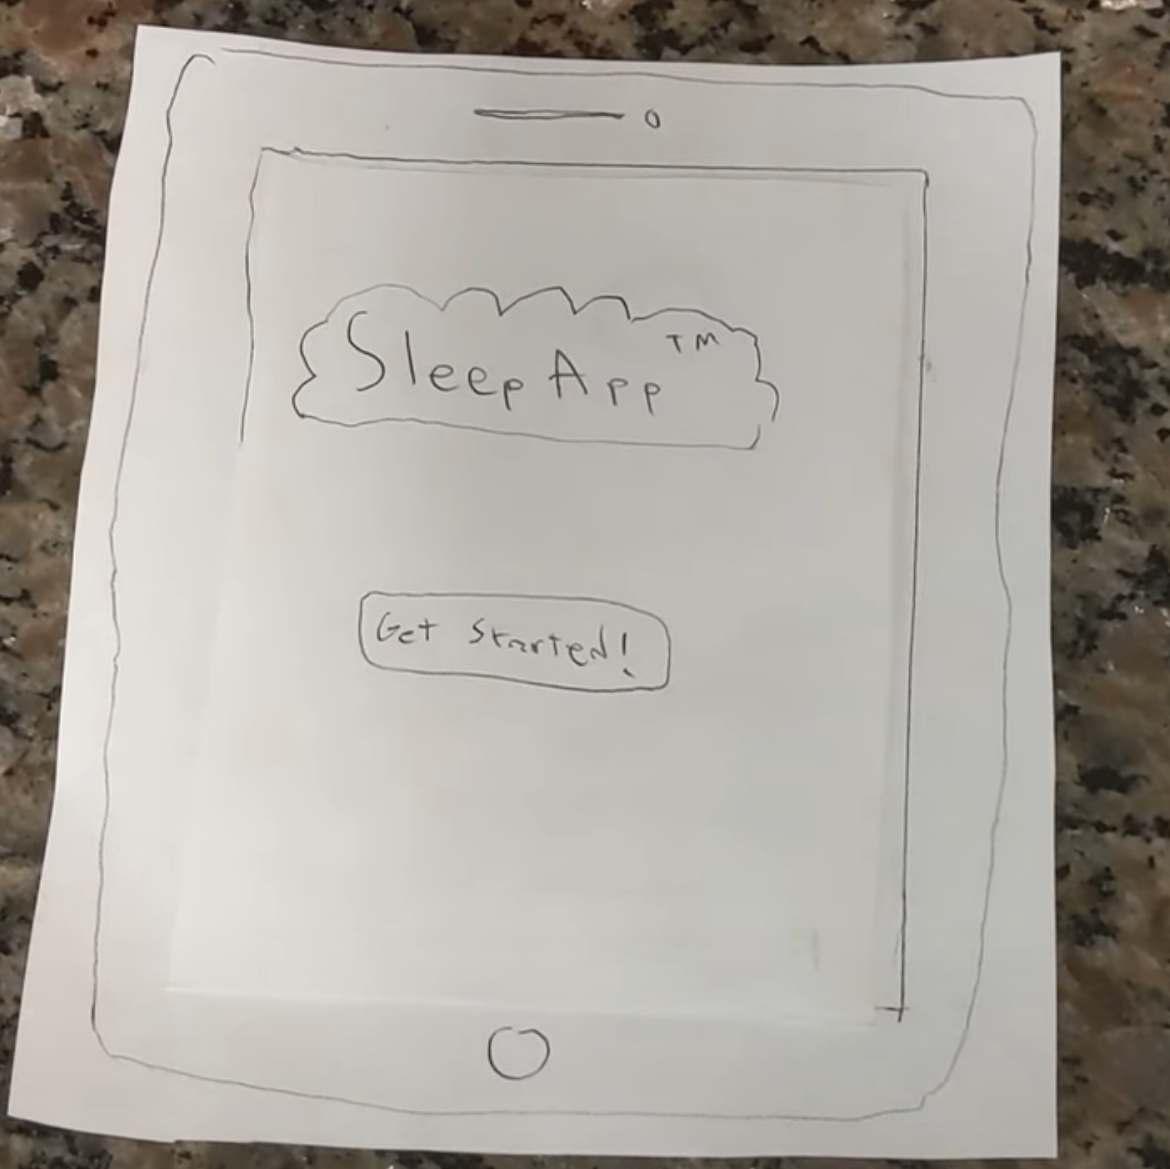 Sleep App™
Get Started!